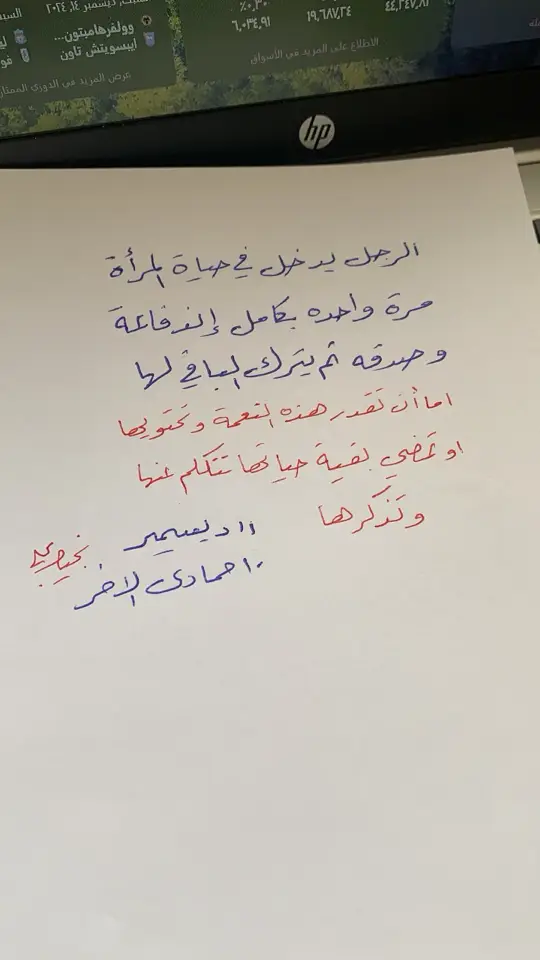 ديسمبر ١٤, ٢٠٢٤
وولفرهامبتون...
ايبسويتش تاون
عرض المزيد في الدوري الممتاز
٠٫٣٠٪
٦,٠٣٤٫٩١
١٩,٦٨٧٫٢٤
٤٤,٢٤٧٫٨٣
الاطلاع على المزيد في الأسواق
hp
الرجل يدخل في حياة المرأة
مرة واحده بكامل إندفاعة
وصدقه ثم يترك الباقي لها
اما أن تقدر هذه النعمة وتحتويها
او تمضي بقية حياتها تتكلم عنها
وتذكرها
١١ ديسمبر
١٠ جمادى الاخر